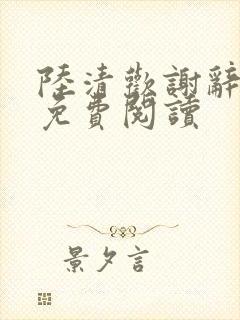 陸清歡謝辭
免費閱讀
景夕言